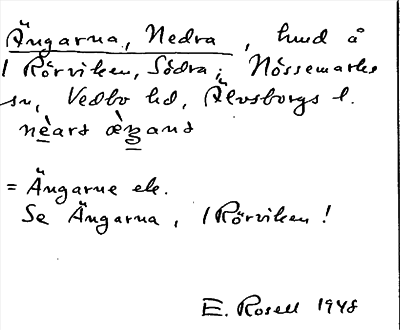 Ängarna, Nedra, hmd å
/ Rörviken, Södra; Nössemarks
sn, Vedbo hd, Älvsborgs l.
nèarɜ æ̀ŋaɜ
= Ängarne ek.
Se Ängarna, / Rörviken!
E. Rosell 1948